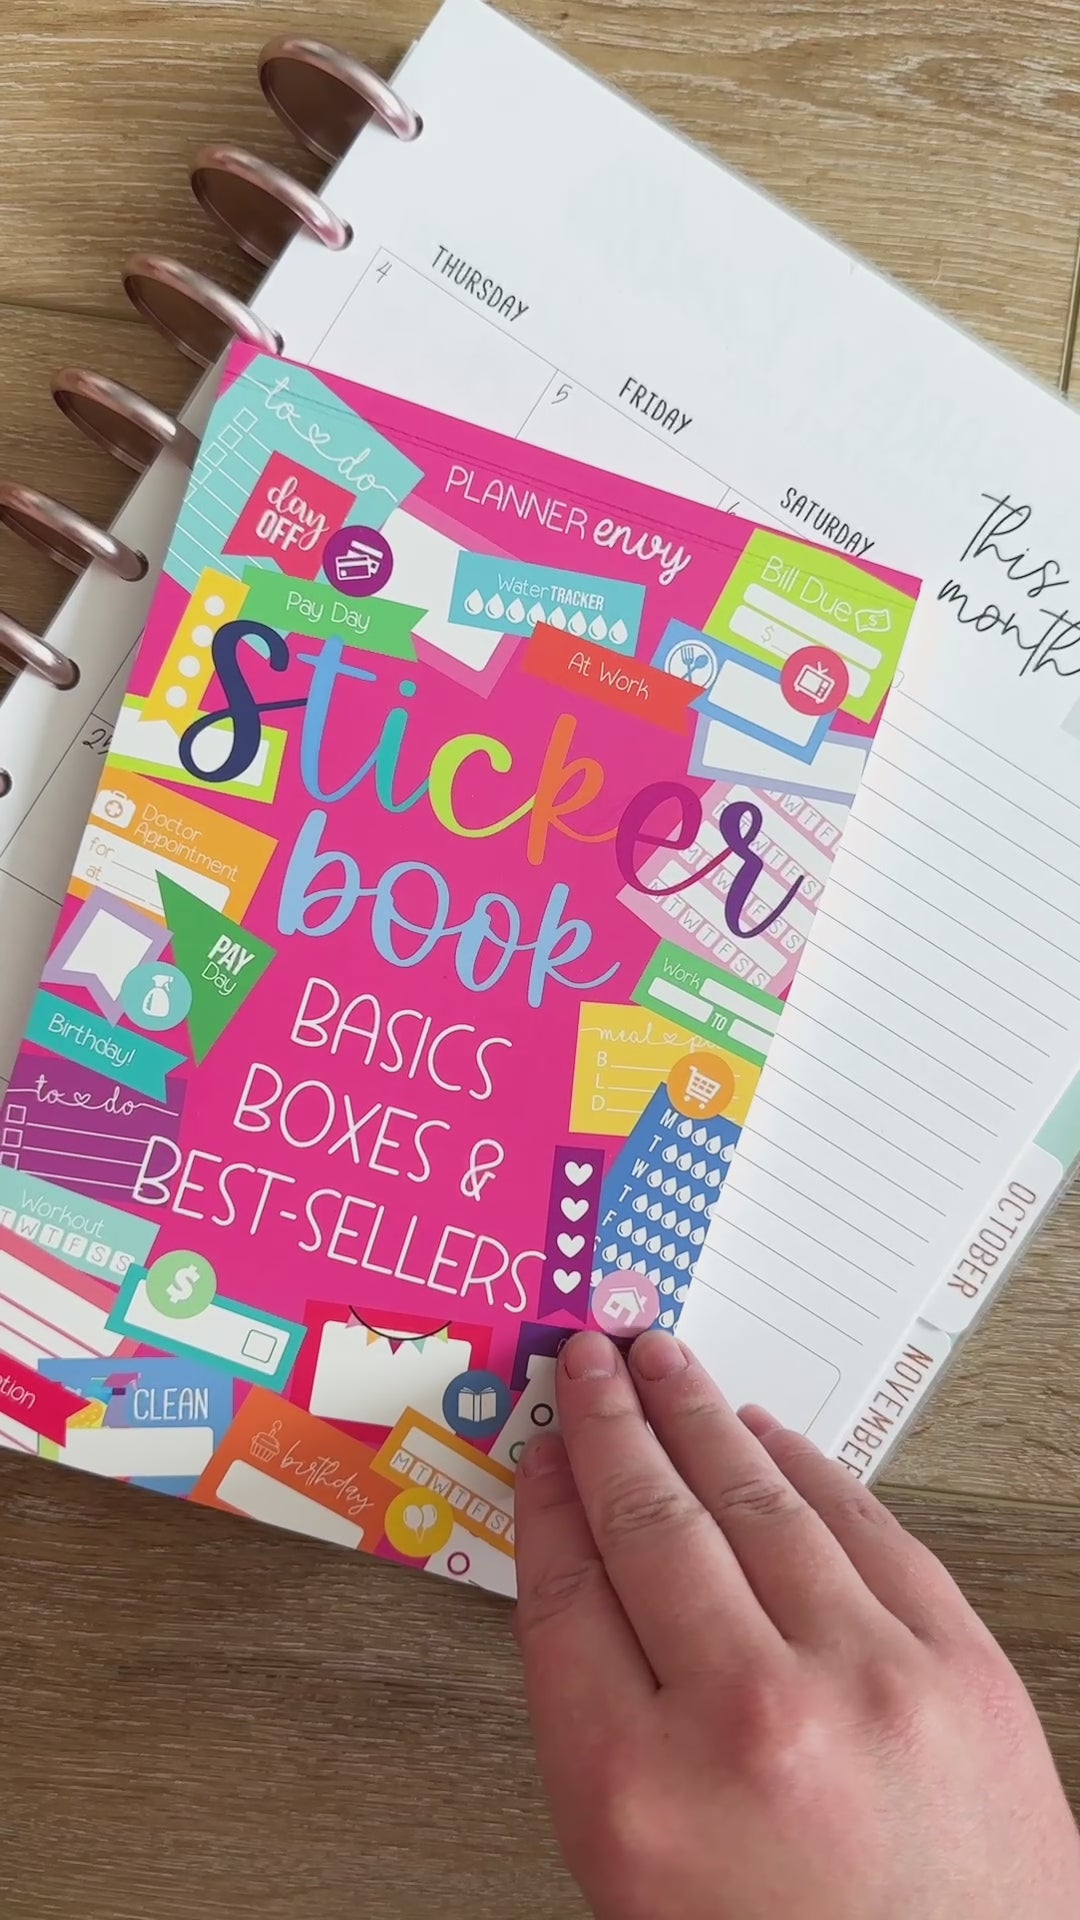 THURSDAY
4
FRIDAY
5
SATURDAY
6
this
month
25
OCTOBER
NOVEMBER
PLANNER envy
to do
day
OFF
Pay Day
Water TRACKER
At Work
Bill Due
$
Sticker
book
BASICS
BOXES &
BEST-SELLERS
Doctor
Appointment
for
at
PAY
Day
Birthday!
to do
Workout
T W T F S S
Work
TO
meal
B
L
D
M
T
W
T
F
S
$
CLEAN
birthday
M T W T F S